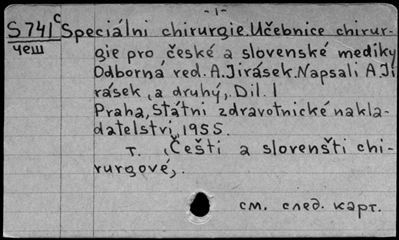 - 1 -
S741c Speciálni chirurgie. Učebnice chirur-
чеш gie pro české a slovenské mediky
Odborná red. A. Jirásek. Napsali A. Ji
rásek, a druhý,. Dil. 1
Praha, Státni zdravotnické nakla-
datelstvi, 1955.
т. , Češti a slovenšti chi-
rurgové,.
см. след. карт.